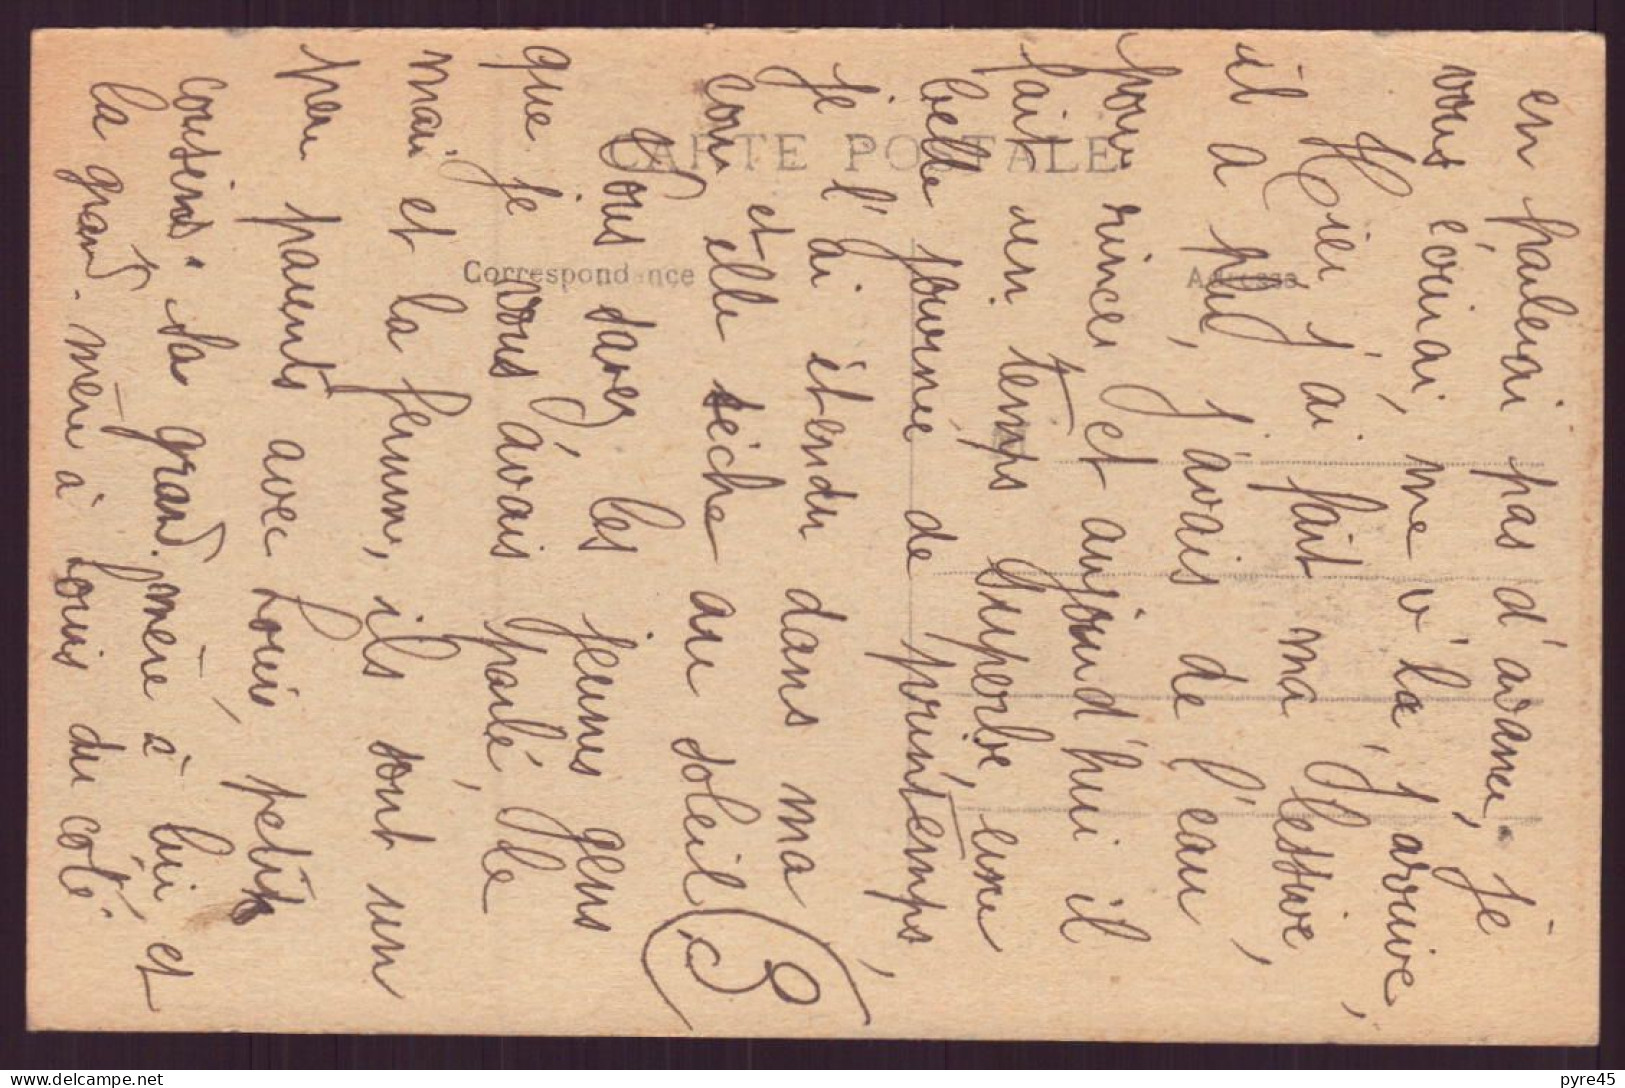 en parlerai pas d'avance, je
vous écrirai, me v'là, j'arrive,
Hier j'ai fait ma lessive,
il a plu, j'avais de l'eau,
pour rincer, et aujourd'hui il
fait un temps superbe, une
belle journée de printemps,
je l'ai étendu dans ma
cour et elle sèche au soleil
Vous savez les jeunes gens
que je vous avais parlé, le
mari et la femme, ils sont un
peu parents avec Louis, petits
cousins. sa grand. mère à lui, et
la grand. mère à Louis du coté
CARTE POSTALE
Correspondance
Adresse
delcampe.net
pyre45